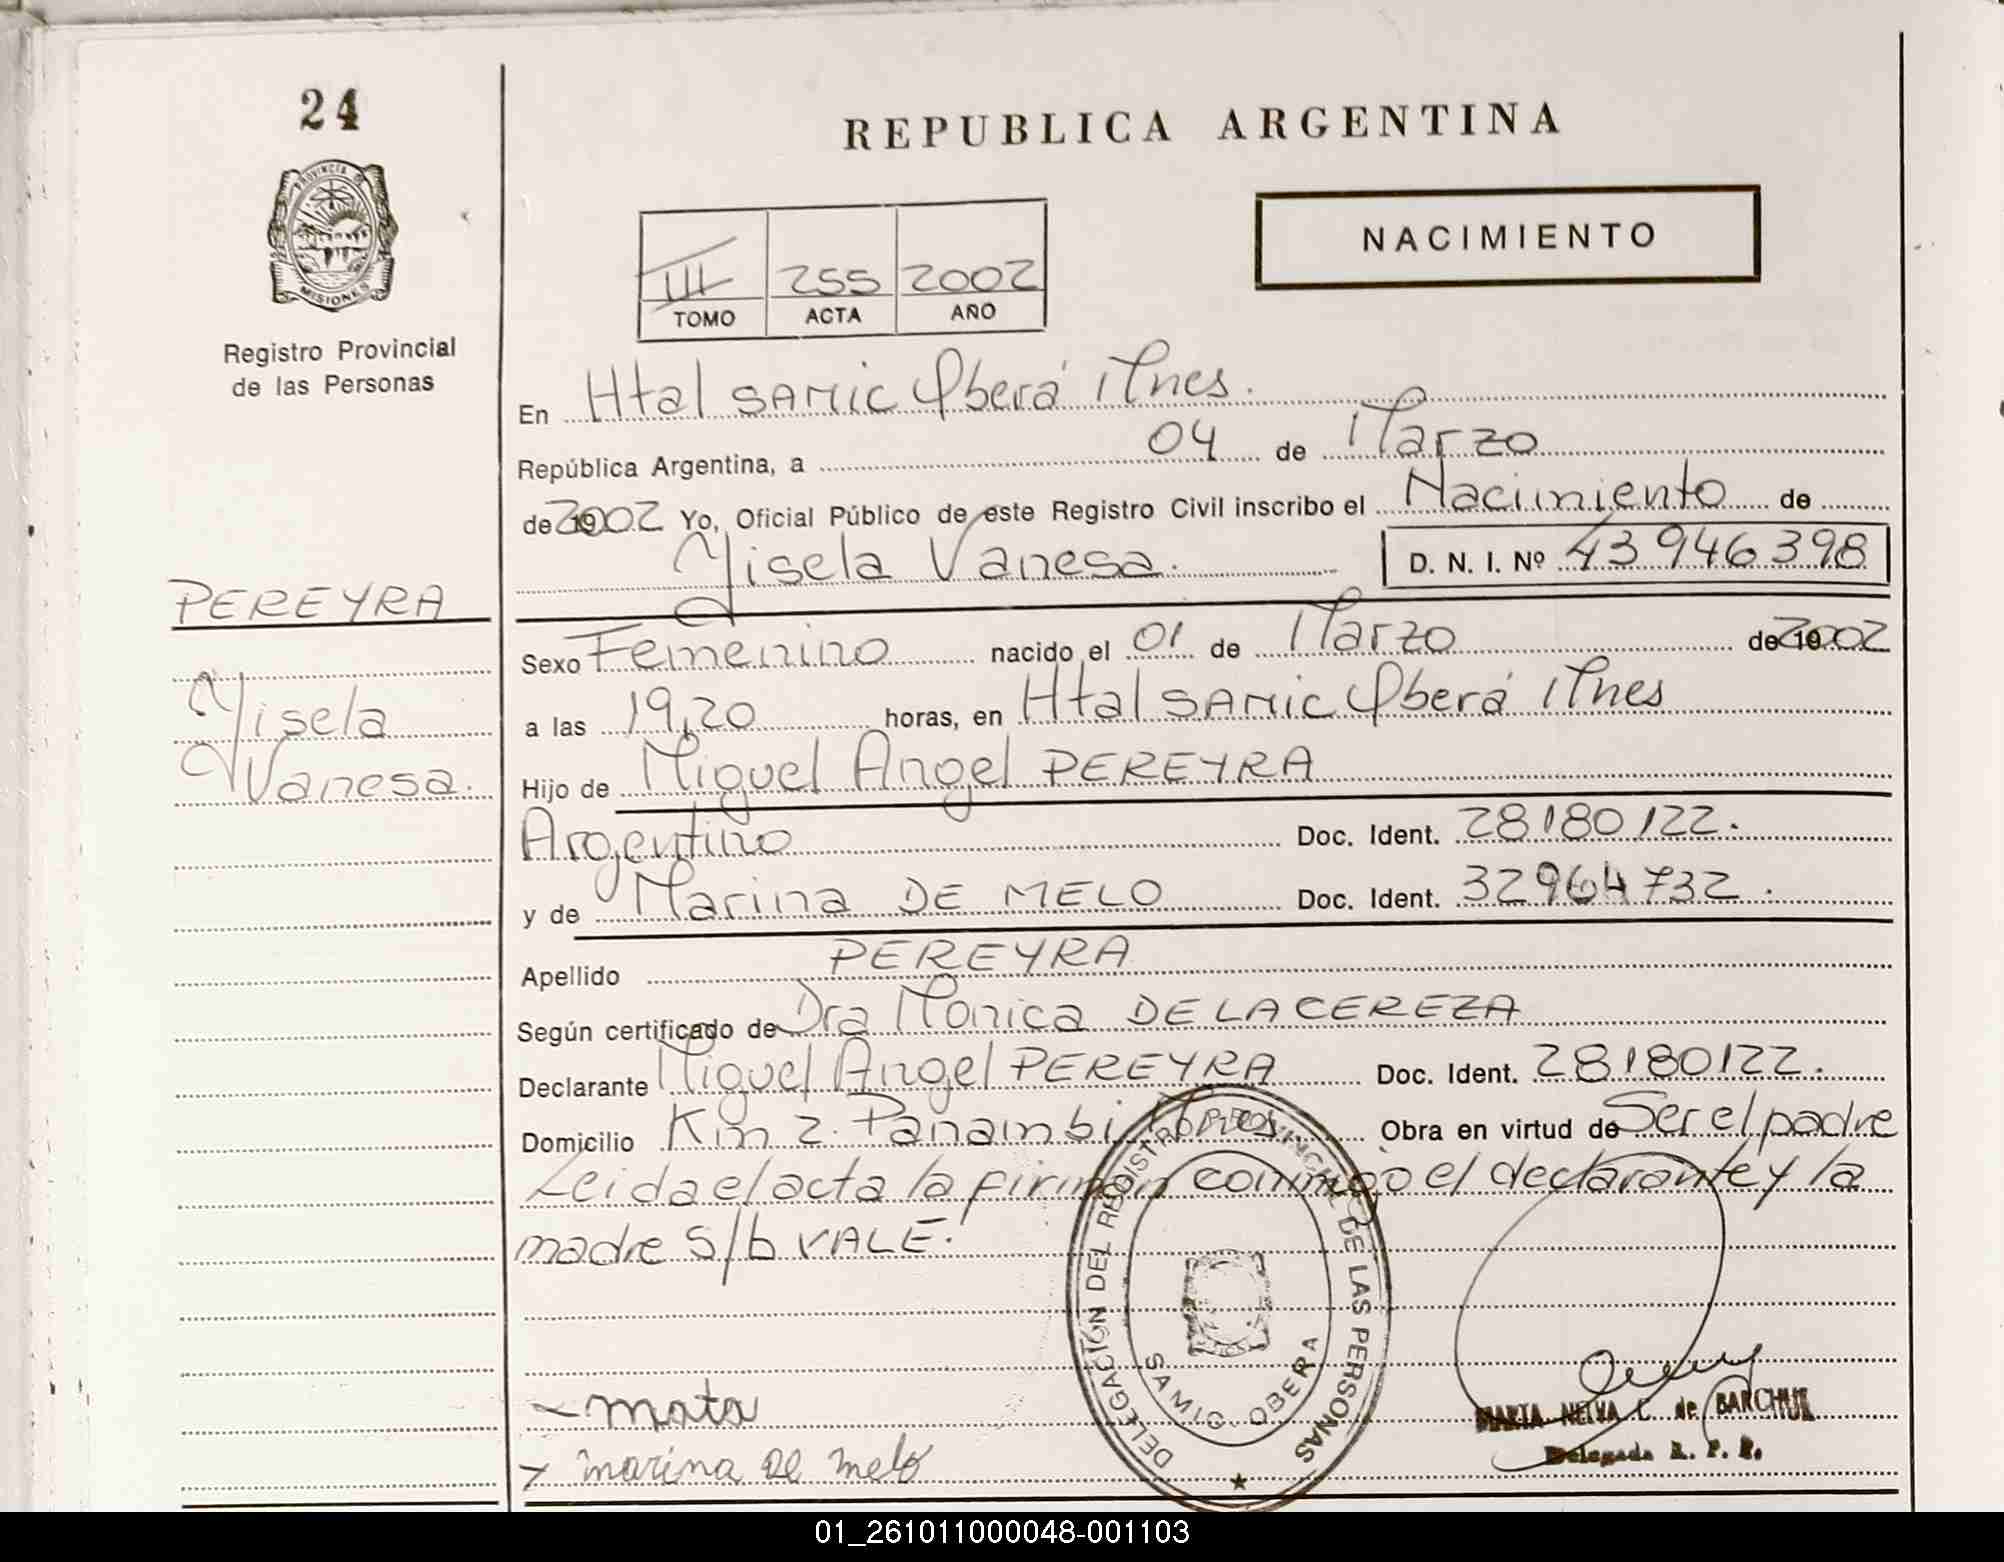 24
PROVINCIA DE
MISIONES
Registro Provincial
de las Personas
PEREYRA
Yisela
Vanesa.
REPUBLICA ARGENTINA
NACIMIENTO
III 255 2002
TOMO ACTA AÑO
En Htal SAMIC Oberá Mnes.
República Argentina, a 04 de Marzo
de 2002 Yo, Oficial Público de este Registro Civil inscribo el Nacimiento de
Yisela Vanesa. D. N. I. Nº 43946398
Sexo Femenino nacido el 01 de Marzo de 2002
a las 19,20 horas, en Htal SAMIC Oberá Mnes
Hijo de Miguel Angel PEREYRA
Argentino Doc. Ident. 28180122.
y de Marina DE MELO Doc. Ident. 32964732.
Apellido PEREYRA
Según certificado de Dra Monica DE LA CEREZA
Declarante Miguel Angel PEREYRA Doc. Ident. 28180122.
Domicilio Km 2. Panambi Mnes Obra en virtud de Ser el padre
Leida el acta la firman conmigo el declarante y la
madre S/b VALE.
DELEGACIÓN DEL REGISTRO PROVINCIAL DE LAS PERSONAS
SAMIC - OBERA
MARTA NELVA C. de BARCHUK
Delegada R. P. P.
marina de melo
01_261011000048-001103